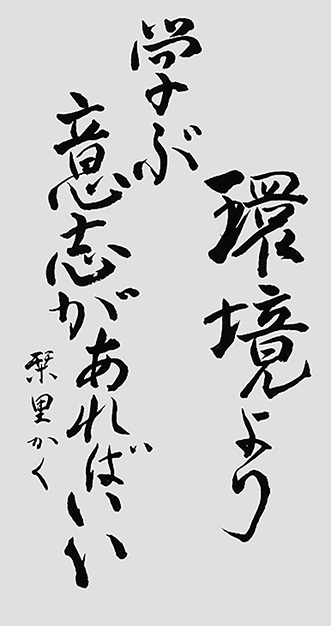 環境より
学ぶ
意志があればいい
栞里かく